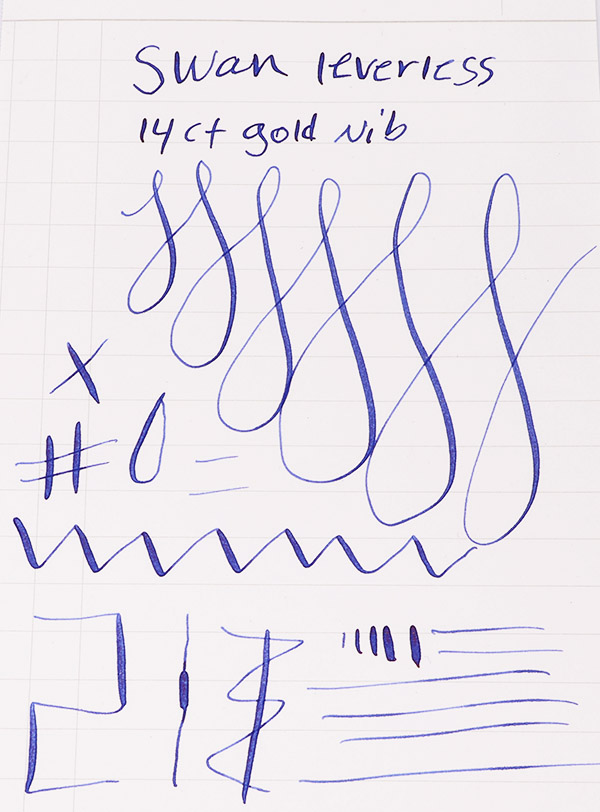 Swan leverless
14 ct gold nib